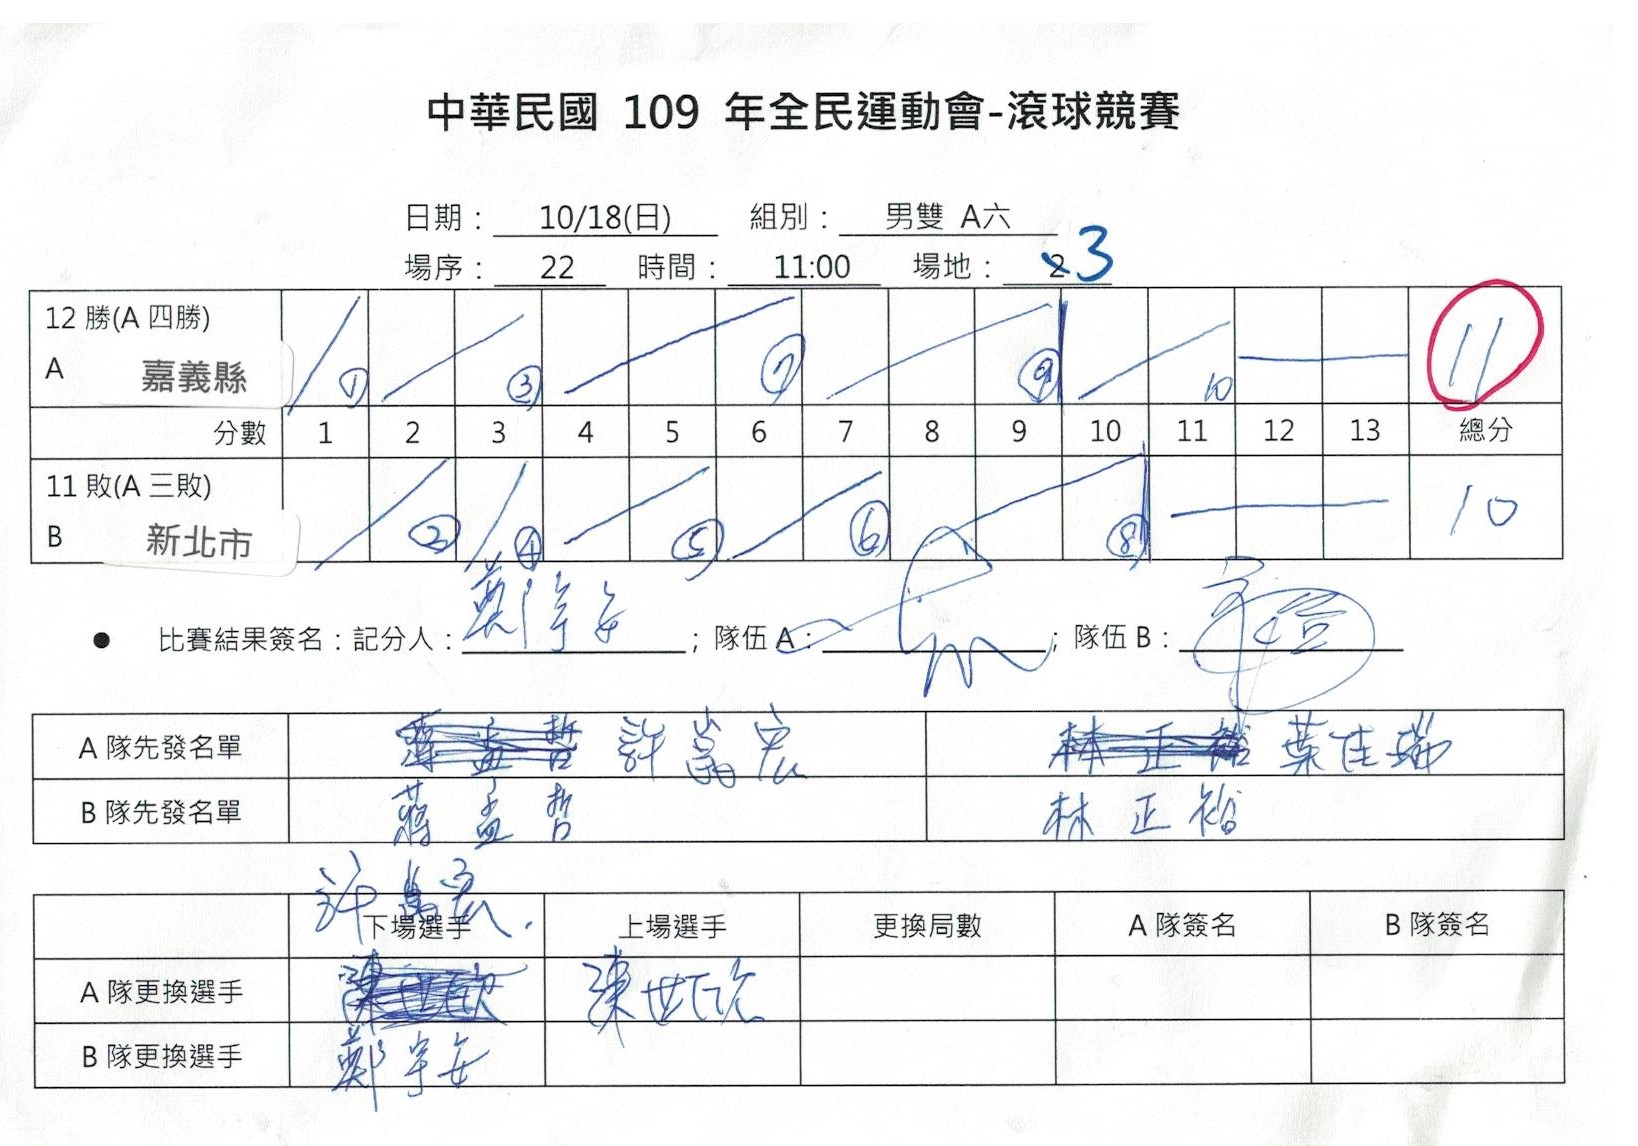 中華民國 109 年全民運動會-滾球競賽
日期： 10/18(日) 組別： 男雙 A六
場序： 22 時間： 11:00 場地： 2 3
12 勝(A 四勝)
A 嘉義縣 ① ③ ⑦ ⑨ 10 11
分數 1 2 3 4 5 6 7 8 9 10 11 12 13 總分
11 敗(A 三敗)
B 新北市 ② ④ ⑤ ⑥ ⑧ 10
● 比賽結果簽名：記分人： 鄭宇安 ；隊伍 A： ；隊伍 B：
A 隊先發名單 蔣孟哲 許嵩宏 林正裕 葉佳瑞
B 隊先發名單 蔣孟哲 林正裕
許
下場選手 上場選手 更換局數 A 隊簽名 B 隊簽名
A 隊更換選手 陳世欣
B 隊更換選手 鄭宇安